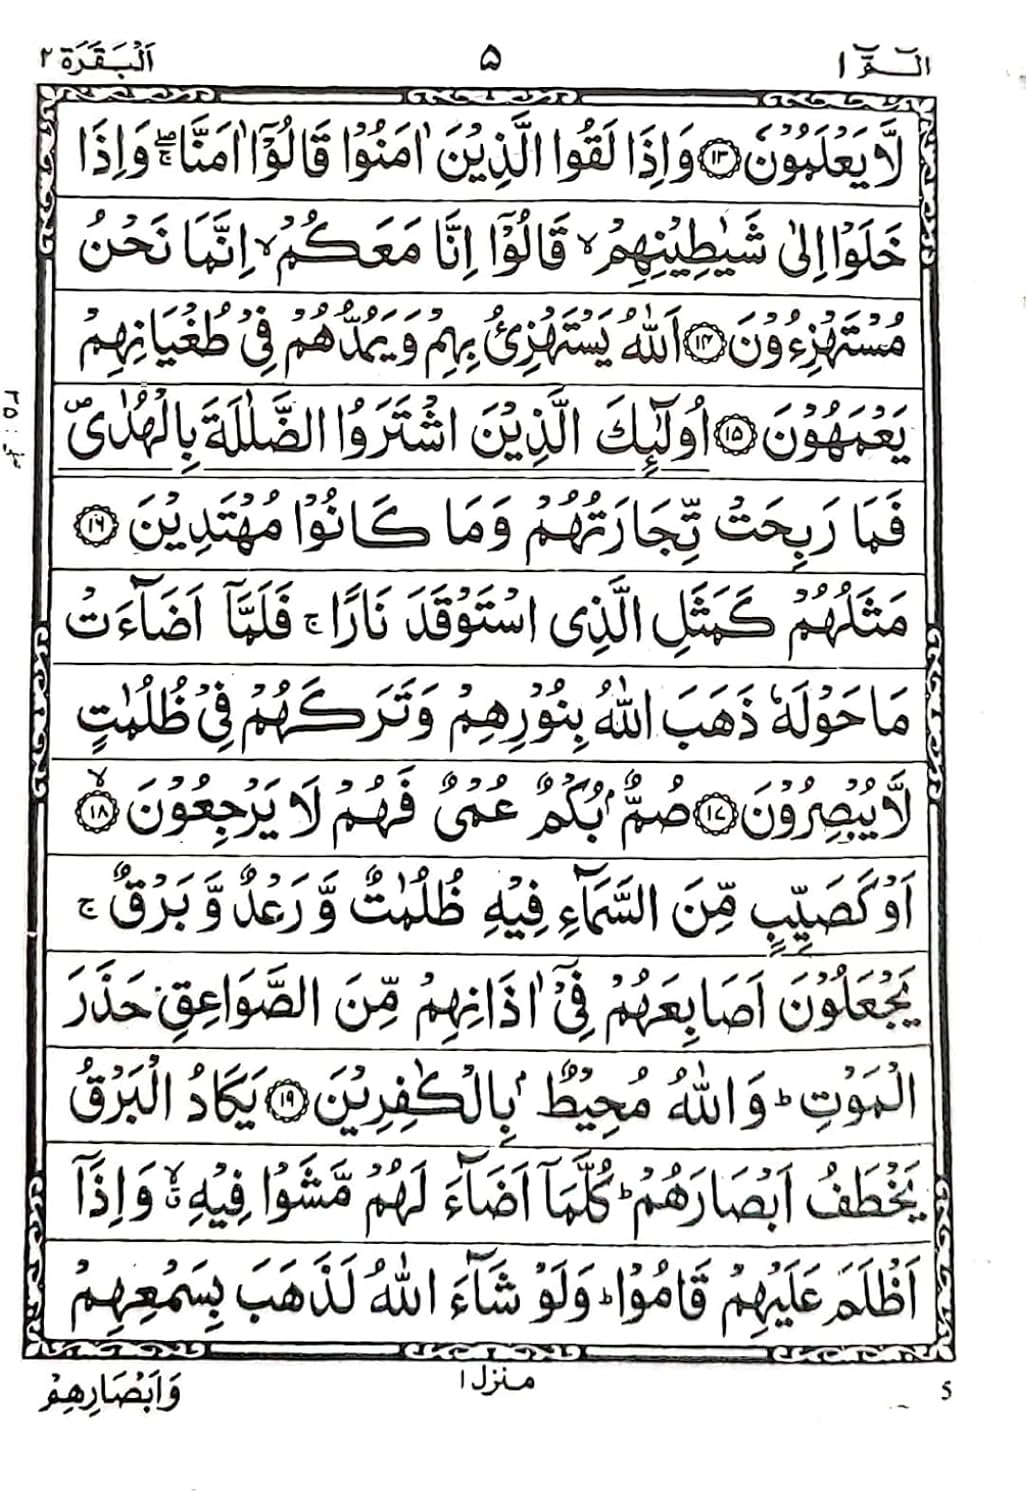 الٓمّٓ ١
۵
اَلْبَقَرَة ٢
لَّا يَعْلَمُوْنَ ﴿۱۳﴾ وَاِذَا لَقُوا الَّذِيْنَ اٰمَنُوْا قَالُوْٓا اٰمَنَّا ۖۚ وَاِذَا
خَلَوْا اِلٰى شَيٰطِيْنِهِمْ ۙ قَالُوْٓا اِنَّا مَعَكُمْ ۙ اِنَّمَا نَحْنُ
مُسْتَهْزِءُوْنَ ﴿۱۴﴾ اَللّٰهُ يَسْتَهْزِئُ بِهِمْ وَيَمُدُّهُمْ فِيْ طُغْيَانِهِمْ
يَعْمَهُوْنَ ﴿۱۵﴾ اُولٰٓئِكَ الَّذِيْنَ اشْتَرَوُا الضَّلٰلَةَ بِالْهُدٰى ۪
فَمَا رَبِحَتْ تِّجَارَتُهُمْ وَمَا كَانُوْا مُهْتَدِيْنَ ﴿۱۶﴾
مَثَلُهُمْ كَمَثَلِ الَّذِى اسْتَوْقَدَ نَارًا ۚ فَلَمَّآ اَضَآءَتْ
مَا حَوْلَهٗ ذَهَبَ اللّٰهُ بِنُوْرِهِمْ وَتَرَكَهُمْ فِيْ ظُلُمٰتٍ
لَّا يُبْصِرُوْنَ ﴿۱۷﴾ صُمٌّۢ بُكْمٌ عُمْىٌ فَهُمْ لَا يَرْجِعُوْنَ ۙ﴿۱۸﴾
اَوْ كَصَيِّبٍ مِّنَ السَّمَآءِ فِيْهِ ظُلُمٰتٌ وَّرَعْدٌ وَّبَرْقٌ ۚ
يَجْعَلُوْنَ اَصَابِعَهُمْ فِيْٓ اٰذَانِهِمْ مِّنَ الصَّوَاعِقِ حَذَرَ
الْمَوْتِ ؕ وَاللّٰهُ مُحِيْطٌۢ بِالْكٰفِرِيْنَ ﴿۱۹﴾ يَكَادُ الْبَرْقُ
يَخْطَفُ اَبْصَارَهُمْ ؕ كُلَّمَآ اَضَآءَ لَهُمْ مَّشَوْا فِيْهِ ۙ وَاِذَآ
اَظْلَمَ عَلَيْهِمْ قَامُوْا ؕ وَلَوْ شَآءَ اللّٰهُ لَذَهَبَ بِسَمْعِهِمْ
وَاَبْصَارِهِمْ
منزل ١
5